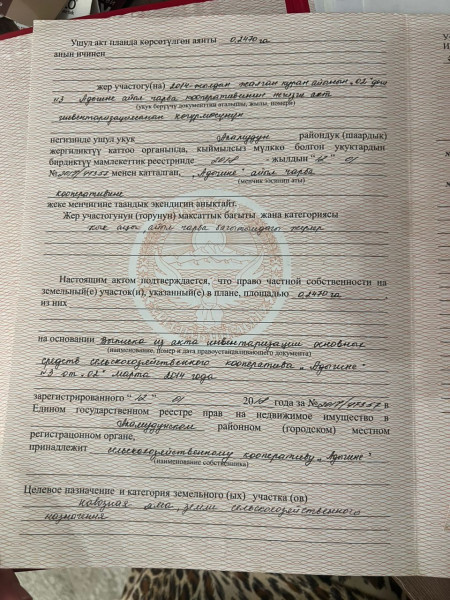 Ушул акт планда көрсөтүлгөн аянты 0,2470 га
анын ичинен
жер участогу(на) 2014-жылдын жалган куран айынын „02“ дни
№3 айыл чарба кооперативинин негизги акт
(укук берүүчү документтин аталышы, жылы, номери)
негизинде ушул укук райондук (шаардык)
жергиликтүү каттоо органында, кыймылсыз мүлккө болгон укуктардын
бирдиктүү мамлекеттик реестринде 2018 - жылдын "12" 01
менен катталган, айыл чарба
(менчик ээсинин аты)
кооперативине
жеке менчигине таандык экендигин аныктайт.
Жер участогунун (торунун) максаттык багыты жана категориясы
айыл чарба багытындагы жерлер
Настоящим актом подтверждается, что право частной собственности на
земельный(е) участок(и), указанный(е) в плане, площадью 0,2470 га
из них
на основании Выписка из акта инвентаризации основных
(наименование, номер и дата правоустанавливающего документа)
средств сельскохозяйственного кооператива
№3 от „02“ марта 2014 года
зарегистрированного "12" 01 2018 года за № в
Едином государственном реестре прав на недвижимое имущество в
районном (городском) местном
регистрационном органе,
принадлежит сельскохозяйственному кооперативу
(наименование собственника)
Целевое назначение и категория земельного (ых) участка (ов)
навозная яма, земли сельскохозяйственного
назначения